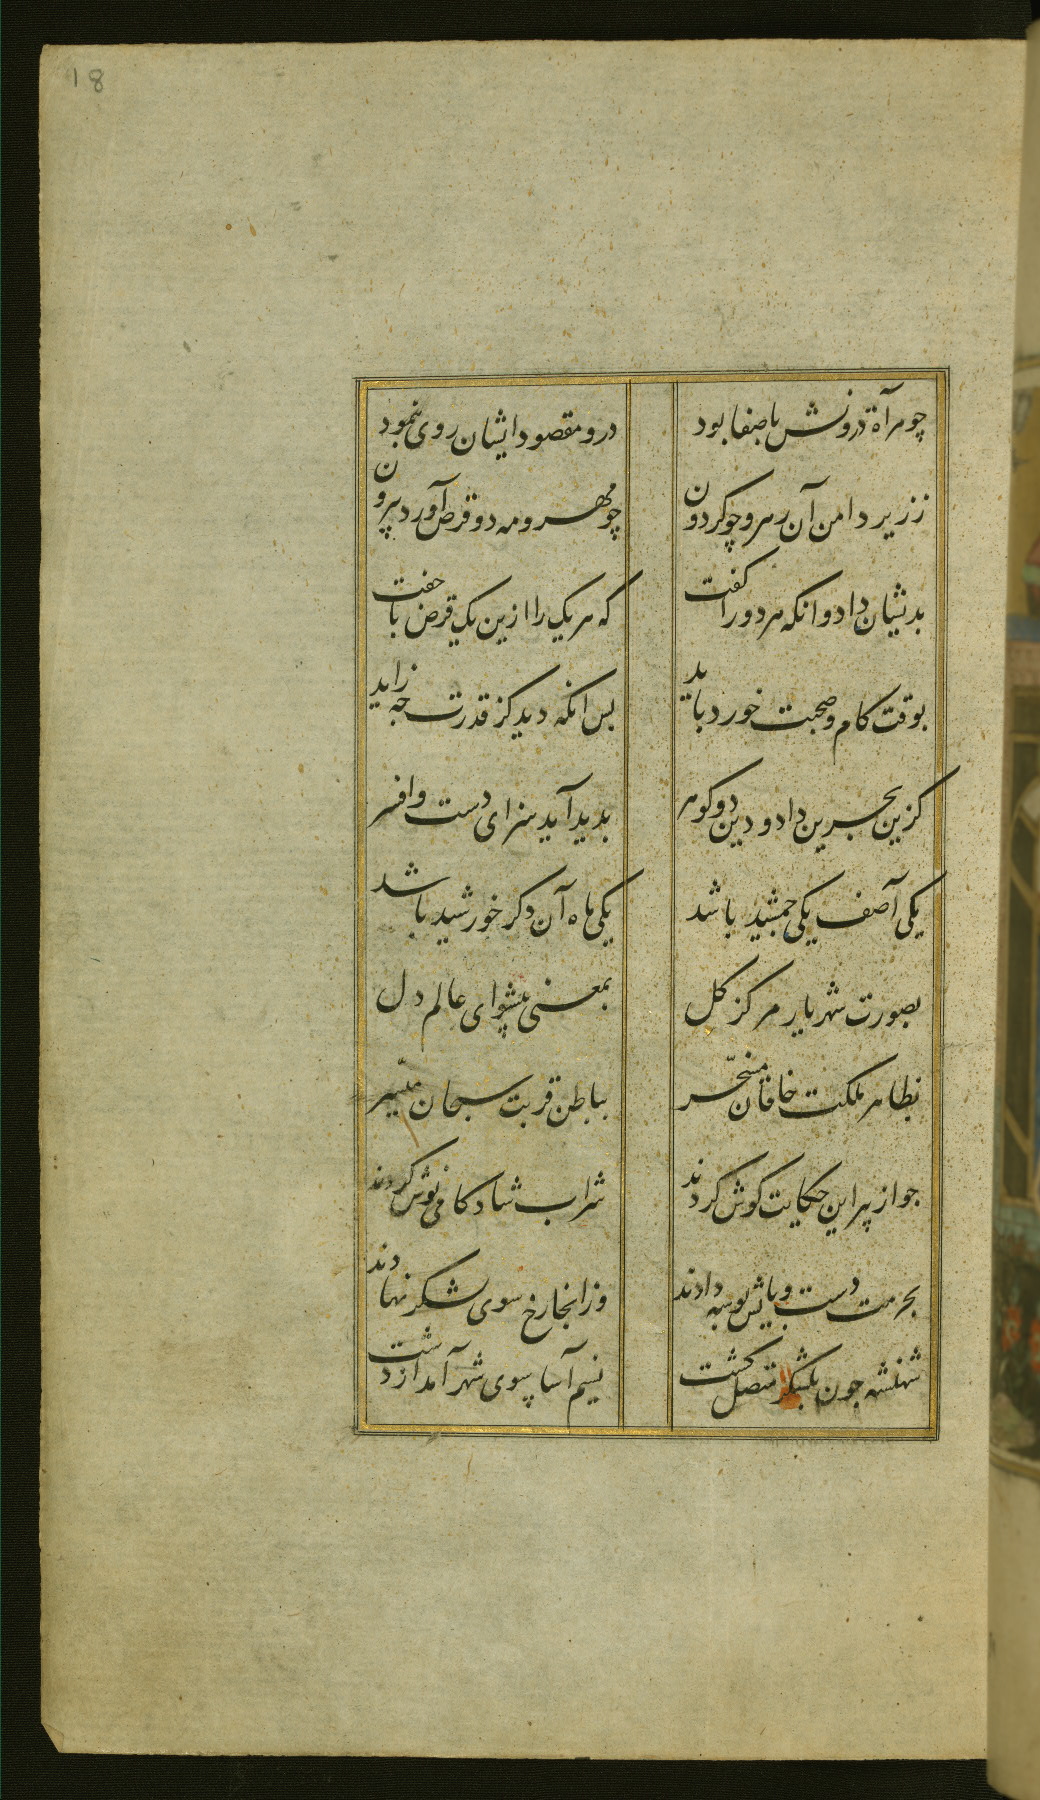 18
چو مرآة درونش باصفا بود در و مقصود ایشان روی بنمود
ز زیر دامن آن رهرو چو کردون چو مهر و مه دو قرص آورد بیرون
بدیشان داد و انکه هر دو را کفت که هر یک را ازین یک قرص با جفت
بوقت کام و صحبت خورد باید بس انکه دید کز قدرت چه زاید
کزین بحرین داد و دین دو کوهر بدید آید سزای دست و افسر
یکی آصف یکی جمشید باشد یکی ماه آن دکر خورشید باشد
بصورت شهریار مرکز کل بمعنی پیشوای عالم دل
بظاهر ملکت خاقان مسخّر بباطن قربت سبحان میسّر
جو از پیر این حکایت کوش کردند شراب شادکامی نوش کردند
بحرمت دست و پایش بوسه دادند وز انجا رخ سوی لشکر نهادند
شهنشه جون بلشکر متصل کشت نسیم آسا سوی شهر آمد از دشت